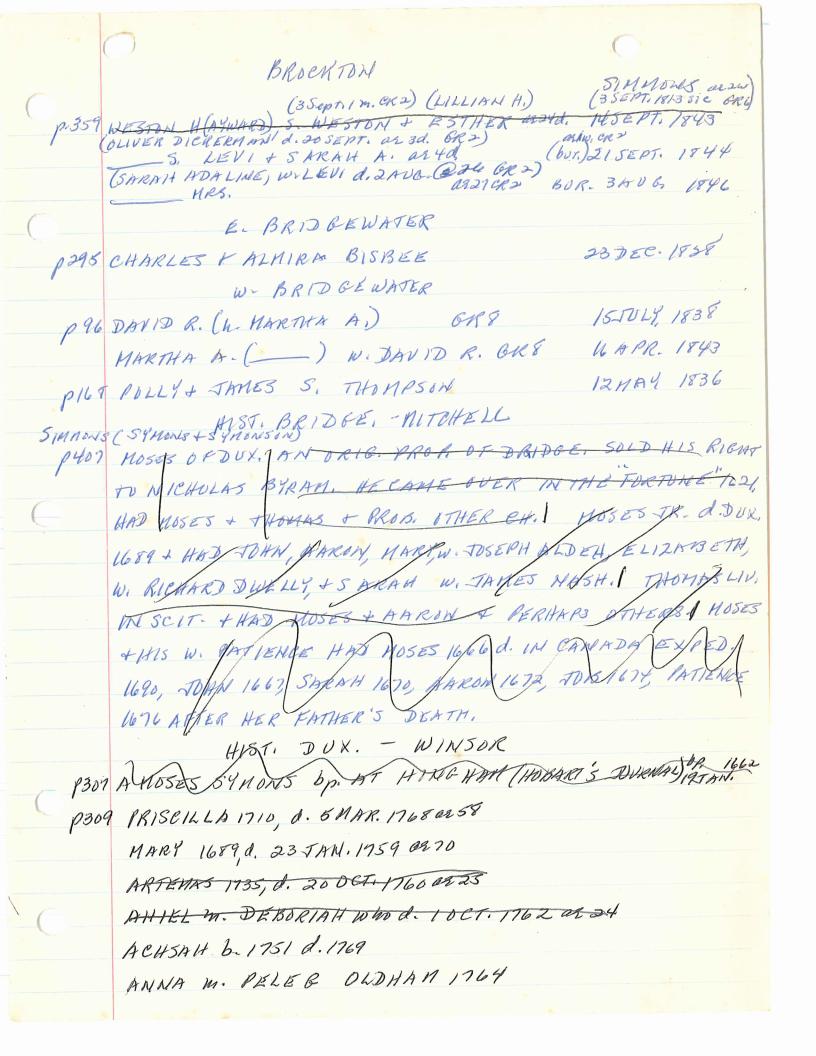 BROCKTON
SIMMONS
(3 Sept. 1 m. CR2) (LILLIAN H.) (3 SEPT. 1813 sic GR6)
p.359 WESTON H(AYWARD) S. WESTON & ESTHER d. 14 SEPT. 1843
(OLIVER DICKERMAN d. 20 SEPT. ae 3d. GR2)
S. LEVI & SARAH A. ae 4d (bur.) 21 SEPT. 1844
(SARAH ADALINE, w. LEVI d. 2 AUG. GR2)
MRS. ae 27 CR2 BUR. 3 AUG 1846
E. BRIDGEWATER
p295 CHARLES & ALMIRA BISBEE 23 DEC. 1828
W. BRIDGEWATER
p96 DAVID R. (h. MARTHA A.) GR8 15 JULY, 1838
MARTHA A. (____) W. DAVID R. GR8 16 APR. 1843
p16T POLLY & JAMES S. THOMPSON 12 MAY 1836
HIST. BRIDGE. - MITCHELL
SIMMONS (SYMONS & SYMONSON)
p407 MOSES OF DUX. AN ORIG. PROP. OF BRIDGE. SOLD HIS RIGHT
TO NICHOLAS BYRAM. HE CAME OVER IN THE "FORTUNE" 1621,
HAD MOSES & THOMAS & PROB. OTHER CH. MOSES JR. d. DUX.
1689 & HAD JOHN, AARON, MARY, W. JOSEPH ALDEN, ELIZABETH,
W. RICHARD DWELLY, & SARAH W. JAMES NASH. THOMAS LIV.
IN SCIT. & HAD MOSES & AARON & PERHAPS OTHERS. MOSES
& HIS W. PATIENCE HAD MOSES 1666 d. IN CANADA EXPED.
1690, JOHN 1667, SARAH 1670, AARON 1672, JOB 1674, PATIENCE
1676 AFTER HER FATHER'S DEATH.
HIST. DUX. - WINSOR
p307 A MOSES SYMONS bp. AT HINGHAM (HOBART'S JOURNAL) bp. 1662
19 JAN.
p309 PRISCILLA 1710, d. 5 MAR. 1768 ae 58
MARY 1689, d. 23 JAN. 1759 ae 70
ARTEMAS 1735, d. 20 OCT. 1760 ae 25
AHIEL m. DEBORIAH who d. 1 OCT. 1762 ae 24
ACHSAH b. 1751 d. 1769
ANNA m. PELEG OLDHAM 1764